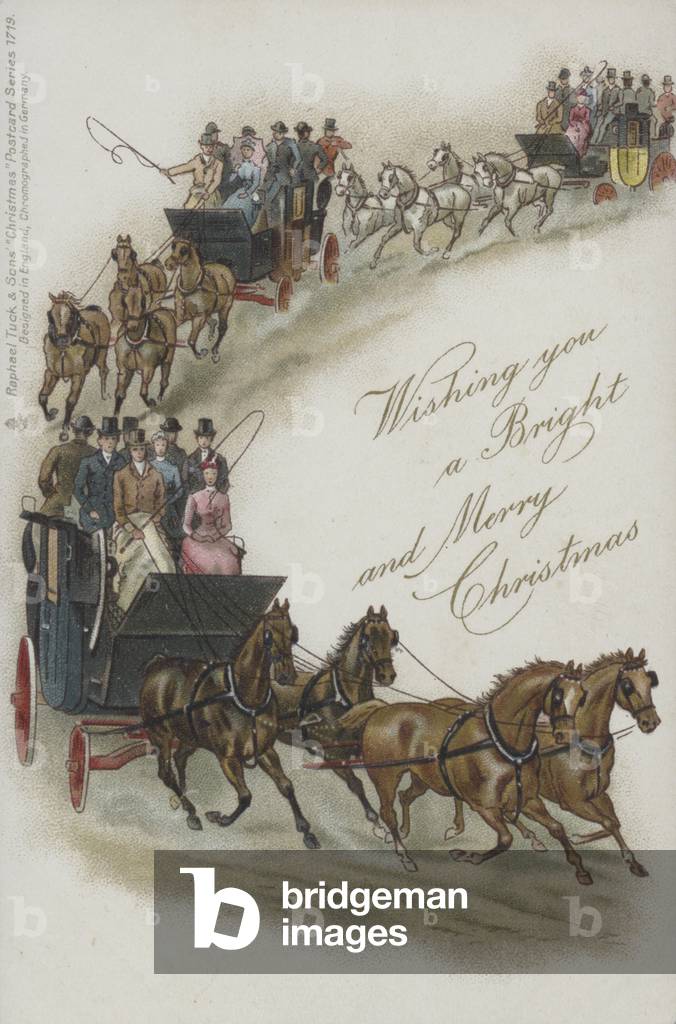 Raphael Tuck & Sons' "Christmas" Postcard Series 1719.
Designed in England, Chromographed in Germany
Wishing you
a Bright
and Merry
Christmas
bridgeman
images